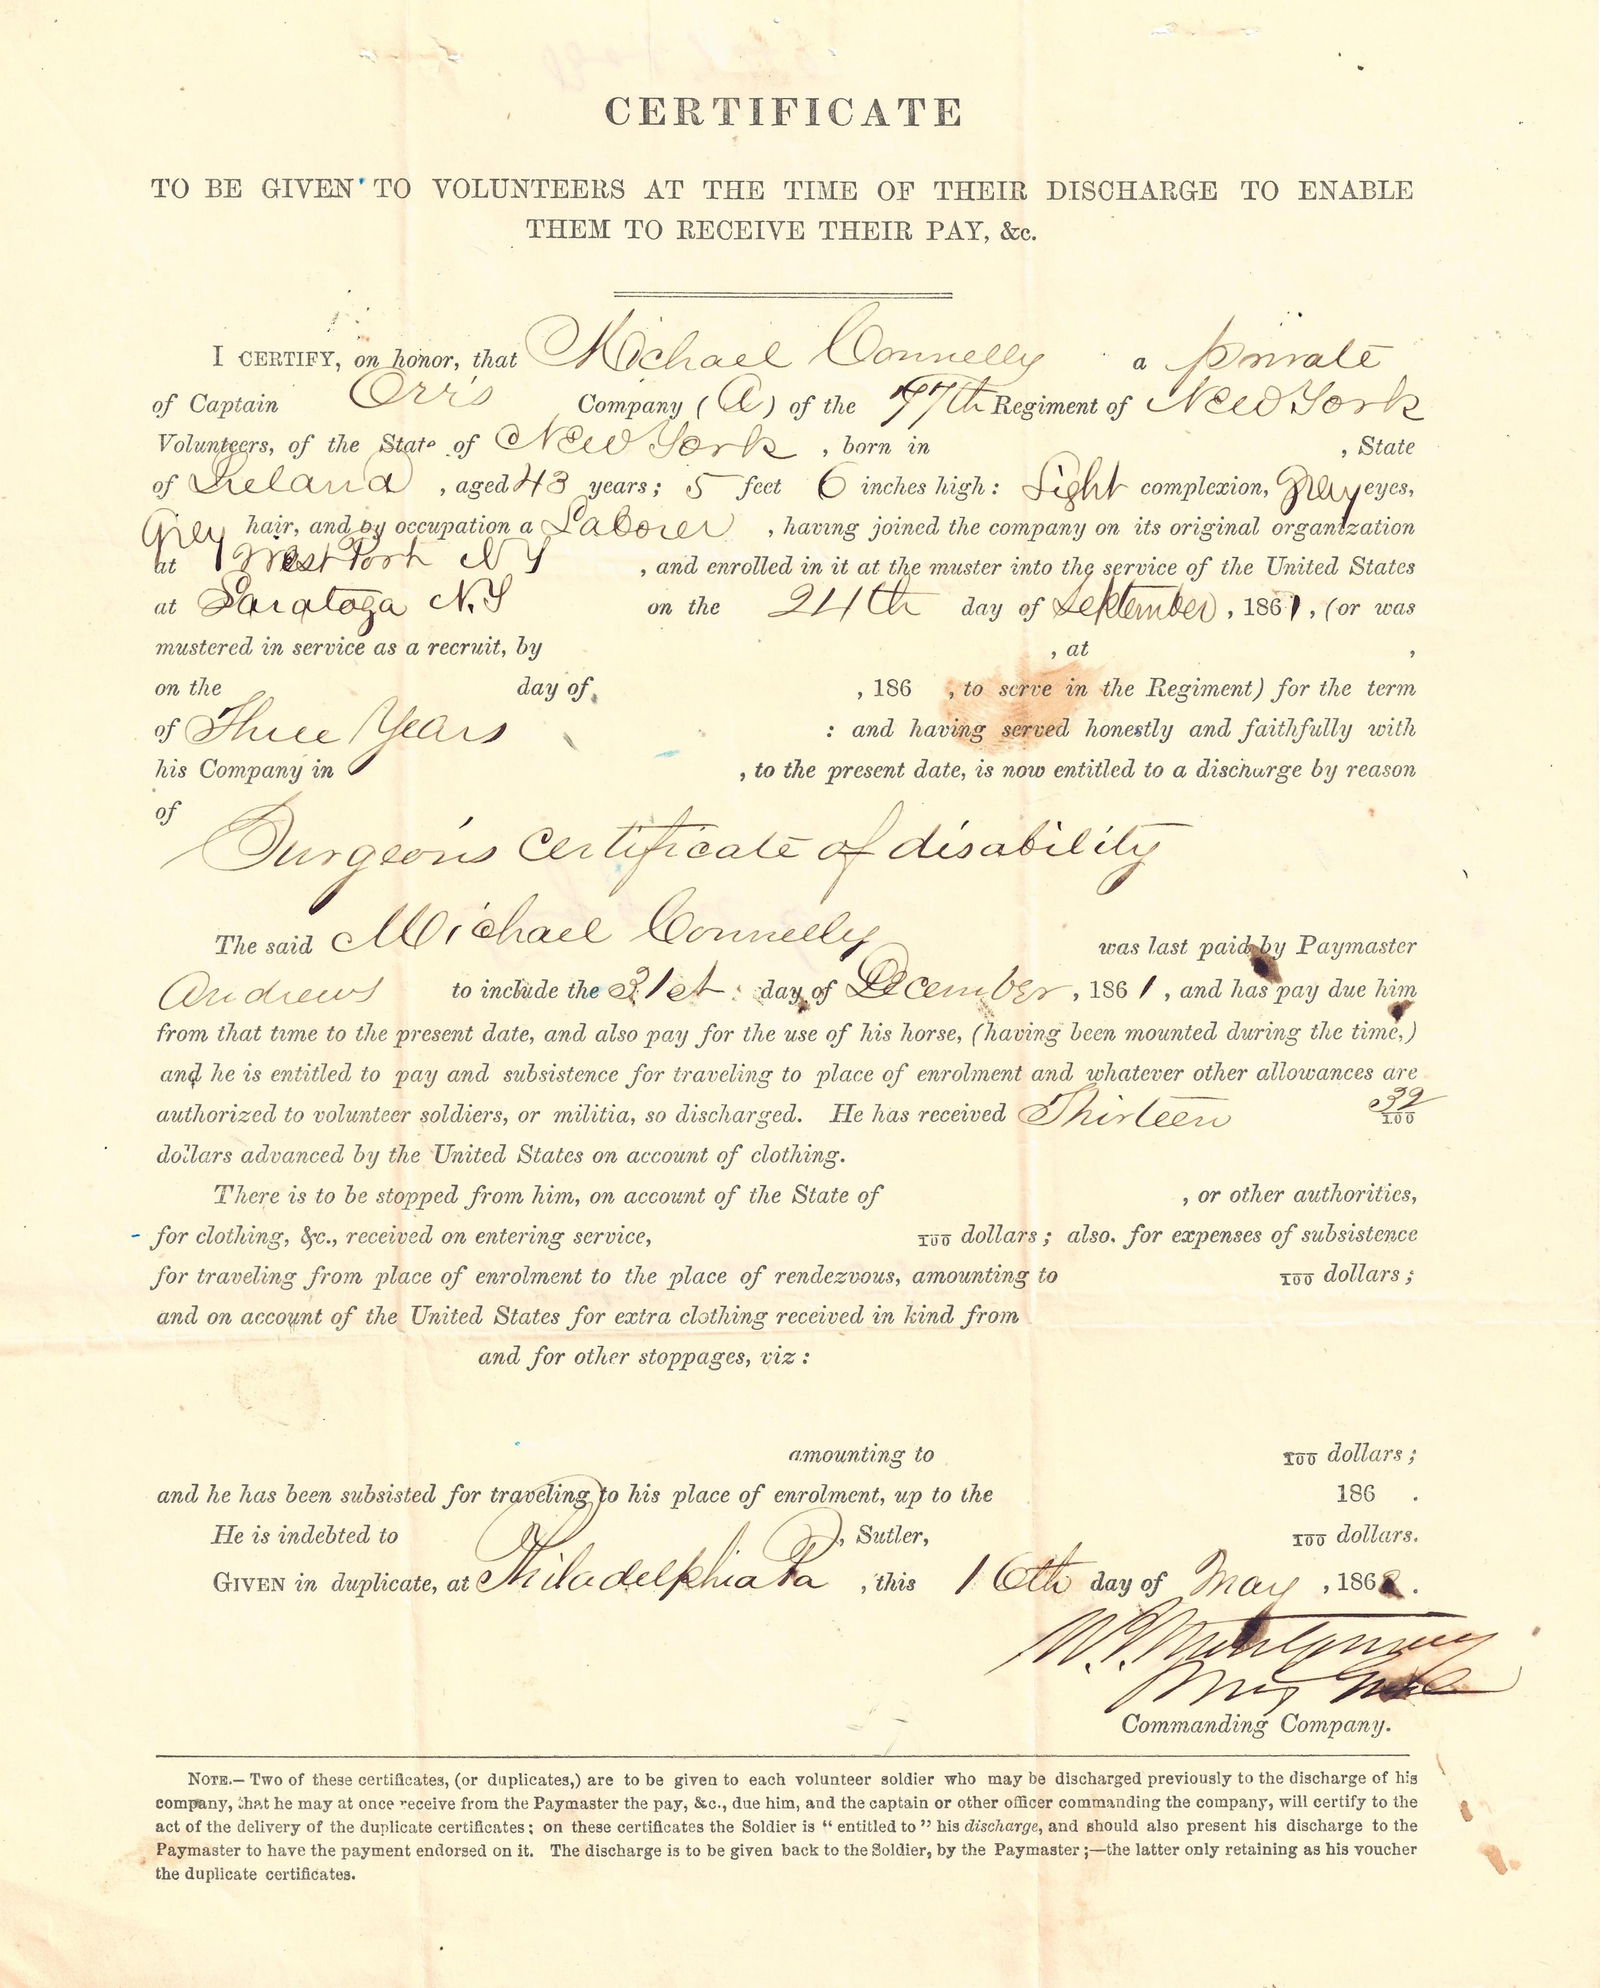 CERTIFICATE
TO BE GIVEN TO VOLUNTEERS AT THE TIME OF THEIR DISCHARGE TO ENABLE
THEM TO RECEIVE THEIR PAY, &c.
I CERTIFY, on honor, that Michael Connelly a private
of Captain Orr's Company (A) of the 77th Regiment of New York
Volunteers, of the State of New York, born in , State
of Ireland, aged 43 years; 5 feet 6 inches high: Light complexion, Grey eyes,
Grey hair, and by occupation a Laborer, having joined the company on its original organization
at West Port N Y, and enrolled in it at the muster into the service of the United States
at Saratoga N.Y on the 24th day of September, 1861, (or was
mustered in service as a recruit, by , at ,
on the day of , 186 , to serve in the Regiment) for the term
of Three Years : and having served honestly and faithfully with
his Company in , to the present date, is now entitled to a discharge by reason
of
Surgeon's Certificate of disability
The said Michael Connelly was last paid by Paymaster
Andrews to include the 31st day of December, 1861, and has pay due him
from that time to the present date, and also pay for the use of his horse, (having been mounted during the time,)
and he is entitled to pay and subsistence for traveling to place of enrolment and whatever other allowances are
authorized to volunteer soldiers, or militia, so discharged. He has received Thirteen 32/100
dollars advanced by the United States on account of clothing.
There is to be stopped from him, on account of the State of , or other authorities,
for clothing, &c., received on entering service, /100 dollars; also, for expenses of subsistence
for traveling from place of enrolment to the place of rendezvous, amounting to /100 dollars;
and on account of the United States for extra clothing received in kind from
and for other stoppages, viz:
amounting to /100 dollars;
and he has been subsisted for traveling to his place of enrolment, up to the 186 .
He is indebted to , Sutler, /100 dollars.
GIVEN in duplicate, at Philadelphia Pa, this 16th day of May, 1862.
W. Montgomery
Commanding Company.
NOTE.—Two of these certificates, (or duplicates,) are to be given to each volunteer soldier who may be discharged previously to the discharge of his
company, that he may at once receive from the Paymaster the pay, &c., due him, and the captain or other officer commanding the company, will certify to the
act of the delivery of the duplicate certificates; on these certificates the Soldier is "entitled to" his discharge, and should also present his discharge to the
Paymaster to have the payment endorsed on it. The discharge is to be given back to the Soldier, by the Paymaster;—the latter only retaining as his voucher
the duplicate certificates.